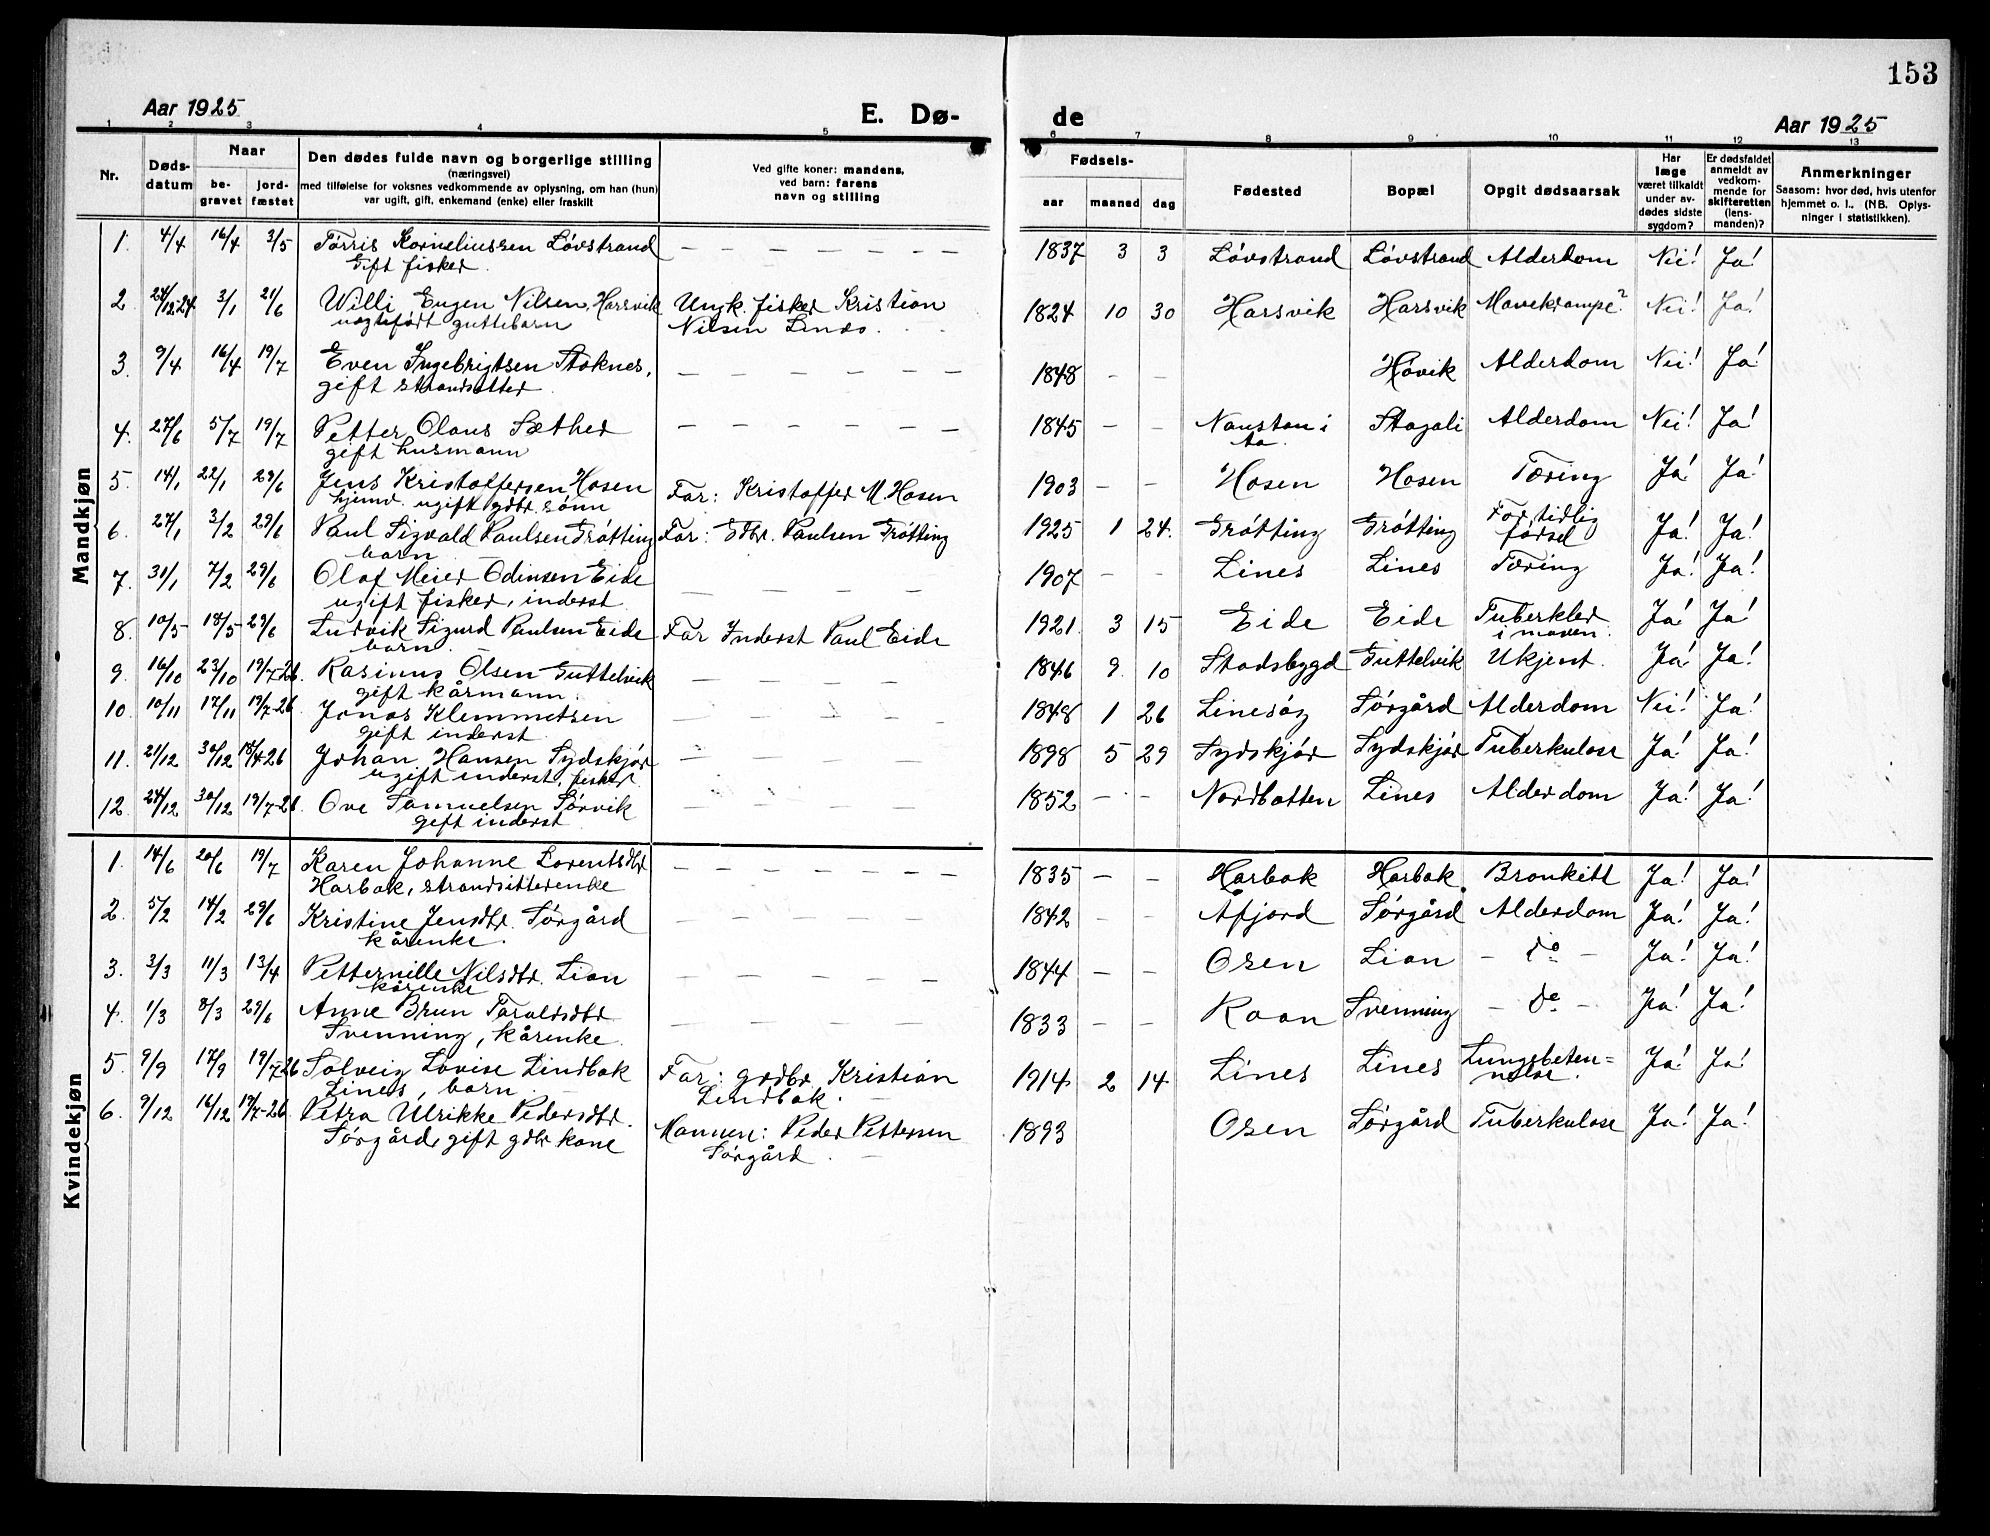 153
Aar 1925
E. Dø-
de
Aar 1925
1 2 3 4 5 6 7 8 9 10 11 12 13
Nr.
Døds-
datum
Naar
be-
gravet
jord-
fæstet
Den dødes fulde navn og borgerlige stilling
(næringsvei)
med tilføielse for voksnes vedkommende av oplysning, om han (hun)
var ugift, gift, enkemand (enke) eller fraskilt
Ved gifte koner: mandens,
ved barn: farens
navn og stilling
Fødsels-
aar maaned dag
Fødested
Bopæl
Opgit dødsaarsak
Har
læge
været tilkaldt
under av-
dødes sidste
sygdom?
Er dødsfaldet
anmeldt av
vedkom-
mende for
skifteretten
(lens-
manden)?
Anmerkninger
Saasom: hvor død, hvis utenfor
hjemmet o. l.. (NB. Oplys-
ninger i statistikken).
Mandkjøn
1. 4/4 16/4 3/5 Tørris Korneliussen Løvstrand — — — — — — 1837 3 3 Løvstrand Løvstrand Alderdom Nei! Ja!
Gift fisker.
2. 24/12-24 3/1 21/6 Willi Eugen Nilsen, Harsvik Ungk. fisker Kristian 1824 10 30 Harsvik Harsvik Mavekrampe? Nei! Ja!
uægtefødt guttebarn Nilsen Linds.
3. 9/4 16/4 19/7 Even Ingebrigtsen Stoknes, — — — — — — 1848 — — Høvik Alderdom Nei! Ja!
gift strandsitter
4. 27/6 5/7 19/7 Petter Olaus Sæther — — — — — — 1845 — — Naustan i Alderdom Nei! Ja!
gift husmann
5. 14/1 22/1 29/6 Jens Kristoffersen Hosen Far: Kristoffer M. Hosen 1903 — — Hosen Hosen Tæring Ja! Ja!
ugift gdbr. sønn
6. 27/1 3/2 29/6 Paul Sigvald Paulsen Grøtting Far: Gdbr. Paulsen Grøtting 1925 1 24. Grøtting Grøtting For tidlig Ja! Ja!
barn fødsel
7. 31/1 7/2 29/6 Olaf Meier Odinsen Eide — — — — — 1907 — — Lines Lines Tæring Ja! Ja!
ugift fisker, inderst
8. 10/5 18/5 29/6 Ludvik Sigurd Paulsen Eide Far Inderst Paul Eide 1921. 3 15 Eide Eide Tuberkler Ja! Ja!
barn. i maven.
9. 16/10 23/10 19/7-26. Rasmus Olsen Guttelvik — — — — — 1846 9. 10 Stadsbygd Guttelvik Ukjent. Ja! Ja!
gift kårmann.
10. 10/11 17/11 19/7-26 Jonas Klemmetsen — — — — — 1848 1 26 Linesøy Sørgård Alderdom Nei! Ja!
gift inderst
11. 21/12 30/12 18/4-26 Johan Hansen Sydskjør — — — — — 1898 5 29 Sydskjør Sydskjør Tuberkulose Ja! Ja!
ugift inderst, fisker
12. 24/12 30/12 19/7-26 Ove Samuelsen Sørvik — — — — — 1852 — — Nordbotten Lines Alderdom Ja! Ja!
gift inderst
Kvindekjøn
1. 14/6 20/6 19/7 Karen Johanne Lorentsdtr — — — — — — 1835 — — Harbak Harbak Bronkitt Ja! Ja!
Harbak, strandsitterenke
2. 5/2 14/2 29/6 Kristine Jensdtr. Sørgård — — — — — 1842 — — Åfjord Sørgård Alderdom Ja! Ja!
kårenke.
3. 3/3 11/3 13/4 Petternille Nilsdtr. Lian — — — — — 1844 — — Osen Lian — do — Ja! Ja!
kårenke
4. 1/3 8/3 29/6 Anne Brun Taraldsdtr — — — — — 1833 — — Roan Svenning — do — Ja! Ja!
Svenning, kårenke.
5. 9/9 17/9 19/7-26 Solveig Lovise Lindbak Far: grdbr. Kristian 1914 2 14 Lines Lines Lungebeten= Ja! Ja!
Lines, barn Lindbak. nelse.
6. 9/12 16/12 19/7-26 Petra Ulrikke Pedersdtr. Mannen: Peder Pettersen 1893 Osen Sørgård Tuberkulose Ja! Ja!
Sørgård, gift gdbr kone Sørgård.